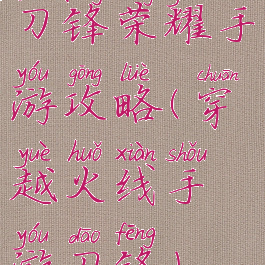 刀锋荣耀手
yóu gōng lüè chuān
游攻略(穿
yuè huǒ xiàn shǒu
越火线手
yóu dāo fēng
游刀锋)